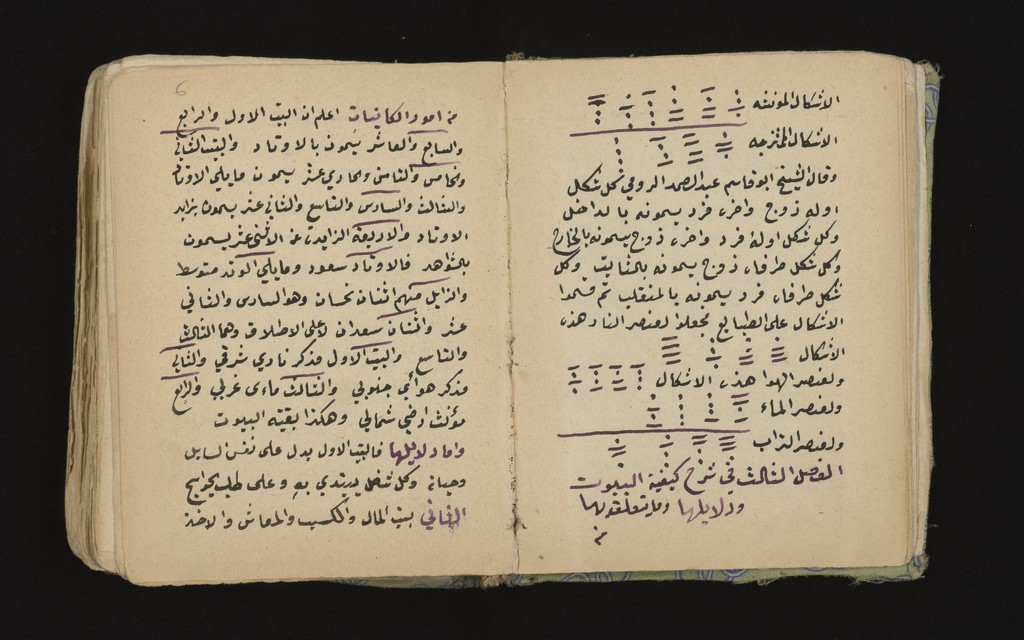 الاشكال المونثه
الاشكال الممتزجه
وقال الشيخ ابو قاسم عبد الصمد الرومي كل شكل
اوله زوج واخره فرد يسمونه بالداخل
وكل شكل اوله فرد واخره زوج يسمونه بالخارج
وكل شكل طرفاه زوج يسمونه بالثابت وكل
شكل طرفاه فرد يسمونه بالمنقلب ثم قسموا
الاشكال على الطبايع فجعلوا لعنصر النار هذه
الاشكال
ولعنصر الهوا هذه الاشكال
ولعنصر الماء
ولعنصر التراب
الفصل الثالث في شرح كيفية البيوت
ودلايلها وما يتعلقونها
من
6
من امور الكاينات اعلم ان البيت الاول والرابع
والسابع والعاشر يسمون بالاوتاد والبيت الثاني
والخامس والثامن والحادي عشر يسمون مايلي الاوتاد
والثالث والسادس والتاسع والثاني عشر يسمون بزايد
الاوتاد والاربعة الزايدة عن الاثني عشر يسمون
بالشواهد فالاوتاد سعود ومايلي الوتد متوسط
والزايل منهم اثنان نحسان وهو السادس والثاني
عشر واثنان سعدان على الاطلاق وهما الثالث
والتاسع والبيت الاول مذكر ناري شرقي والثاني
مذكر هوائي جنوبي والثالث مائى غربي والرابع
مؤنث ارضي شمالي وهكذا بقية البيوت
واما دلايلها فالبيت الاول يدل على نفس السايل
وحياته وكل شغل يبتدي به وعلى طلب الحوايج
الثاني بيت المال والكسب والمعاش والاخذ